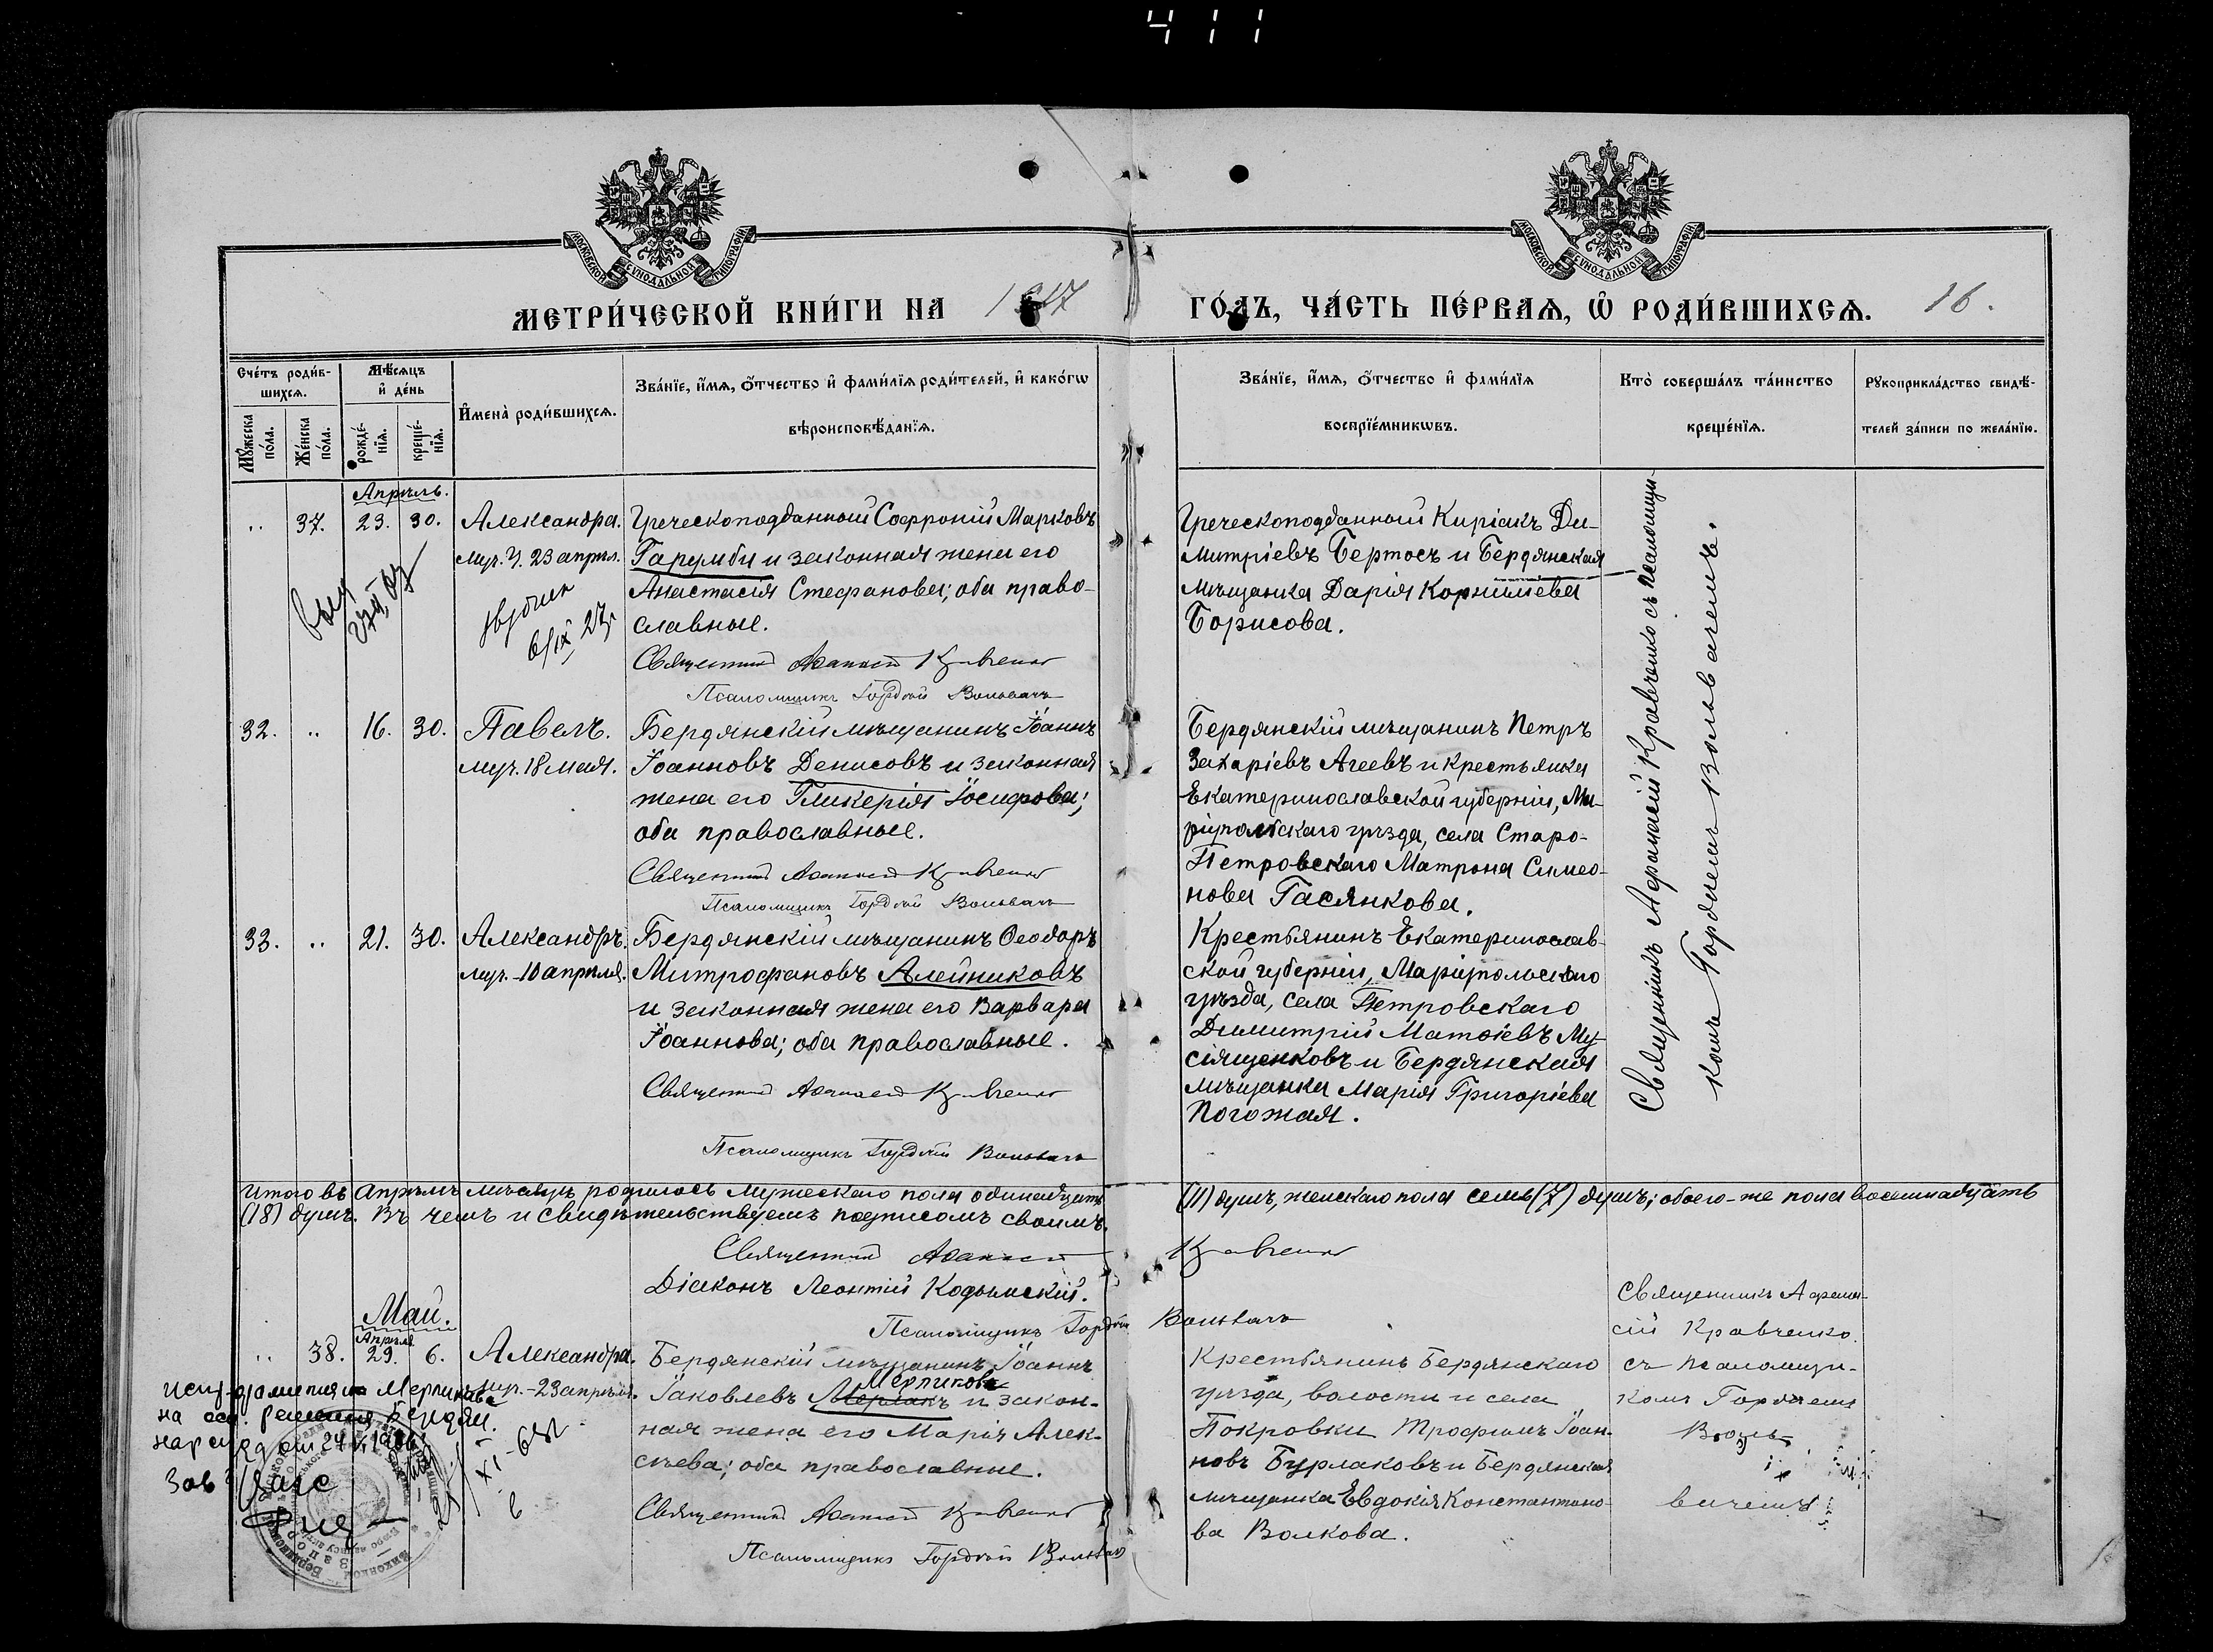 411
МОСКОВСКОЙ СѴНОДАЛЬНОЙ ТИПОГРАФІИ
МОСКОВСКОЙ СѴНОДАЛЬНОЙ ТИПОГРАФІИ
МЕТРИ́ЧЕСКОЙ КНИ́ГИ НА 1917
ГО́ДЪ, ЧА́СТЬ ПЕ́РВАѦ, Ѿ РОДИ́ВШИХСѦ. 16.
Сче́тъ роди́в-
шихсѧ.
Мꙋ́жеска по́ла.
Же́нска по́ла.
Мѣ́сѧцъ
и де́нь
рожде́-
нїѧ.
креще́-
нїѧ.
Имена̀ роди́вшихсѧ.
Зва́нїе, и́мѧ, ѻ́тчество и фами́лїѧ роди́телей, и како́гѡ
вѣроисповѣ́данїѧ.
Зва́нїе, и́мѧ, ѻ́тчество и фами́лїѧ
воспрїе́мникѡвъ.
Кто̀ соверша́лъ та́инство
креще́нїѧ.
Рꙋкоприкла́дство свидѣ́-
телей за́писи по жела́нїю.
Апрѣль.
37. 23. 30. Александра.
муч. Ц. 23 апрѣл.
6/IX 23г.
Греческоподданный Софроній Марковъ
Гарумби и законная жена его
Анастасія Стефанова; оба право-
славные.
Священник Афанасій Кравченко
Псаломщикъ Гордѣй Вольвачъ
Греческоподданный Киріакъ Ди-
митріевъ Бертосъ и Бердянская
мѣщанка Дарія Корниліева
Борисова.
Священникъ Афанасій Кравченко съ псаломщи-
комъ Гордѣемъ Вольвачемъ.
32. 16. 30. Павелъ.
муч. 18 мая.
Бердянскій мѣщанинъ Іоаннъ
Іоанновъ Денисовъ и законная
жена его Гликерія Іосифова;
оба православные.
Священник Афанасій Кравченко
Псаломщикъ Гордѣй Вольвачъ
Бердянскій мѣщанинъ Петръ
Захаріевъ Агеевъ и крестьянка
Екатеринославской губерніи, Ма-
ріупольскаго уѣзда, села Старо-
Петровскаго Матрона Симео-
нова Гасянкова.
33. 21. 30. Александръ.
муч. 10 апрѣля.
Бердянскій мѣщанинъ Ѳеодоръ
Митрофановъ Алейниковъ
и законная жена его Варвара
Іоаннова; оба православные.
Священник Афанасій Кравченко
Псаломщикъ Гордѣй Вольвачъ
Крестьянинъ Екатеринослав-
ской губерніи, Маріупольскаго
уѣзда, села Петровскаго
Димитрій Матѳіевъ Му-
сіященковъ и Бердянская
мѣщанка Марія Григоріева
Погожая.
Итого въ Апрѣлѣ мѣсяцѣ родилось мужескаго пола одинадцать (11) душъ, женскаго пола семь (7) душъ; обоего-же пола восемнадцать
(18) душъ. Въ чемъ и свидѣтельствуемъ подписомъ своимъ.
Священник Афанасій Кравченко
Діаконъ Леонтій Кодымскій.
Псаломщикъ Гордѣй Вольвачъ
Май.
Апрѣля
38. 29. 6. Александра.
мц. - 23 апрѣля.
Бердянскій мѣщанинъ Іоаннъ
Мерликовъ
Іаковлевъ Мерликъ и закон-
ная жена его Марія Алек-
сѣева; оба православные.
Священник Афанасій Кравченко
Псаломщикъ Гордѣй Вольвачъ
Крестьянинъ Бердянскаго
уѣзда, волости и села
Покровки Трофимъ Іоан-
новъ Бурлаковъ и Бердянская
мѣщанка Евдокія Константино-
ва Волкова.
Священникъ Афана-
сій Кравченко
съ псаломщи-
комъ Гордѣемъ
Воль-
вачемъ
фамилия Мерликова
на осн. решения Бердян.
нар суда от 24
Зав